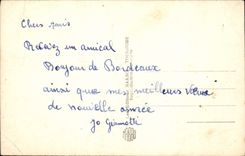 Chers amis
Recevez un amical
Bonjour de Bordeaux
ainsi que mes meilleurs vœux
de nouvelle année
Jo